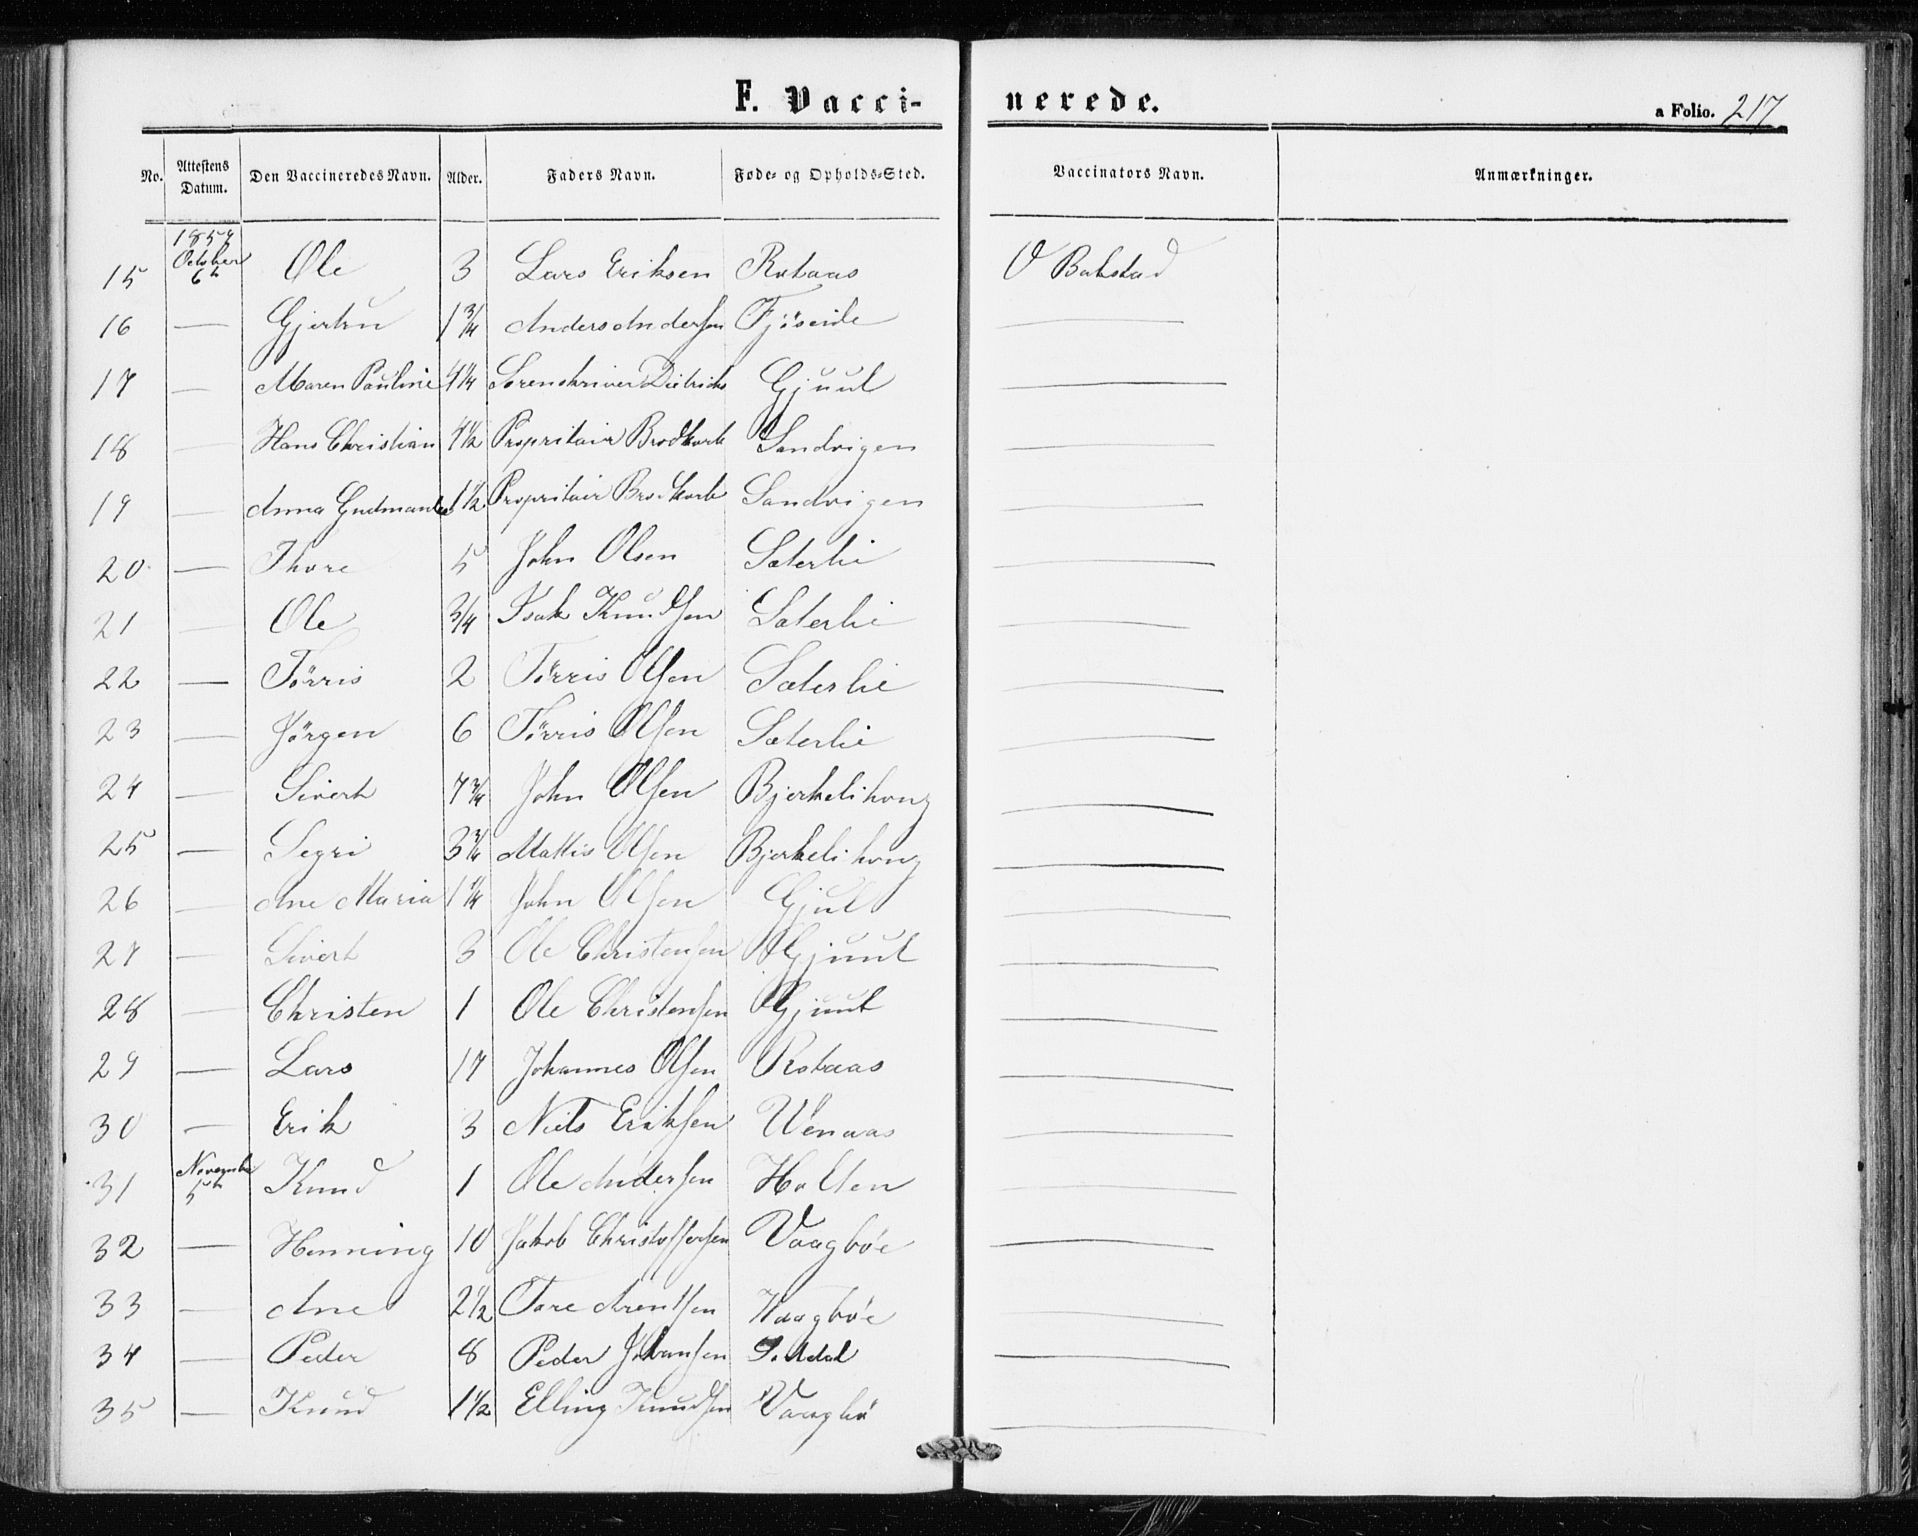 F. Vacci-
nerede.
a Folio. 217
No. Attestens Datum. Den Vaccineredes Navn. Alder. Faders Navn. Føde- og Opholds-Sted. Vaccinators Navn. Anmærkninger.
15 October 6te Ole 3 Lars Eriksen Rotaas O Bakstad
16 — 1 3/4 Anders Andersen —
17 — Maren Pauline 4 1/4 Sorenskriver Gjuul —
18 — Hans Christian 4 1/2 Propritair Brodkorb Sandvigen —
19 — Anna 1 1/2 Propritair Brodkorb Sandvigen —
20 — Thore 5 John Olsen Sæterlie —
21 — Ole 3/4 Isak Knudsen Sæterlie —
22 — Törris 2 Törris Olsen Sæterlie —
23 — Jörgen 6 Törris Olsen Sæterlie —
24 — Sivert 7 3/4 John Olsen —
25 — Segri 3 3/4 Mattis Olsen —
26 — Ane Maria 1 1/4 John Olsen Gjul —
27 — Sivert 3 Ole Christensen Gjuul —
28 — Christen 1 Ole Christensen Gjuul —
29 — Lars 17 Johannes Olsen Rotaas —
30 — Erik 3 Niels Eriksen Wenaas —
31 5te Knud 1 Ole Andersen Holten —
32 — Henning 10 Jakob Christoffersen Vaagböe —
33 — Ane 2 1/2 Tore Arentsen Vaagböe —
34 — Peder 8 Peder Johansen —
35 — Knud 1 1/2 Elling Knudsen Vaagbö —